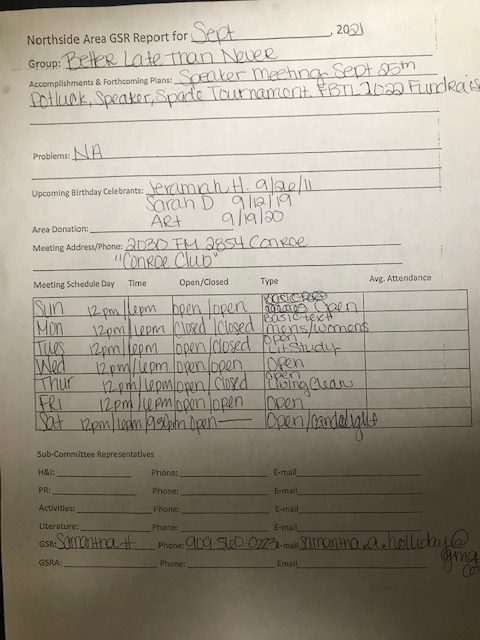 Northside Area GSR Report for Sept, 2021
Group: Better Late Than Never
Accomplishments & Forthcoming Plans: Speaker meeting Sept 25th
Potluck, Speaker, Spade Tournament. FBTL 2022 Fundrais
Problems: NA
Upcoming Birthday Celebrants: Jeramiah H. 9/26/11
Sarah D 9/12/19
Art 9/19/20
Area Donation:
Meeting Address/Phone: 2030 FM 2854 Conroe
"Conroe Club"
Meeting Schedule Day Time Open/Closed Type Avg. Attendance
Sun 12pm/6pm open/open Open
Mon 12pm/6pm Closed/Closed Basic text mens/womens
Tues 12pm/6pm open/closed open Lit Study
Wed 12pm/6pm open/open Open
Thur 12pm/6pm open/closed open Living Clean
FRI 12pm/6pm open/open Open
Sat 12pm/6pm/9:30pm Open Open/candlelight
Sub-Committee Representatives
H&I: Phone: E-mail
PR: Phone: E-mail
Activities: Phone: Email
Literature: Phone: Email
GSR: Samantha H Phone: 909-560-0223 E-mail samantha.a.holliday@
gma
co
GSRA: Phone: Email